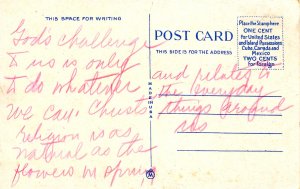 THIS SPACE FOR WRITING
God's challenge
to us is only
to do whatever
we can. Christs
religion is as
natural as the
flowers in spring
MADE IN U.S.A.
POST CARD
THIS SIDE IS FOR THE ADDRESS
and relates to
the everyday
things around
us
Place Stamp here
ONE CENT
for United States
and Island Possessions
Cuba, Canada and
Mexico
TWO CENTS
for Foreign